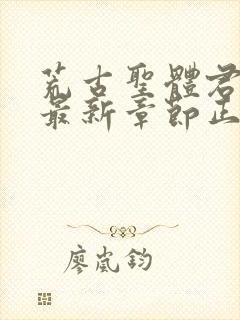 荒古聖體君
最新章節正
廖嵐鈞